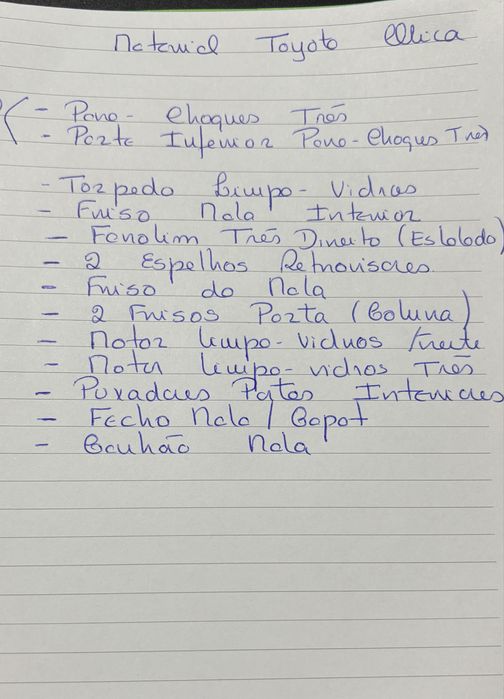 Material Toyota Celica
- Para-Choques Trás
- Parte Inferior Para-Choques Trás
- Torpedo Limpa-Vidros
- Friso Mala Interior
- Farolim Trás Direito (Estalado)
- 2 Espelhos Retrovisores.
- Friso da Mala
- 2 Frisos Porta (Coluna)
- Motor limpa-vidros Frente
- Motor limpa-vidros Trás
- Puxadores Portas Interiores
- Fecho Mala / Capot
- Canhão Mala